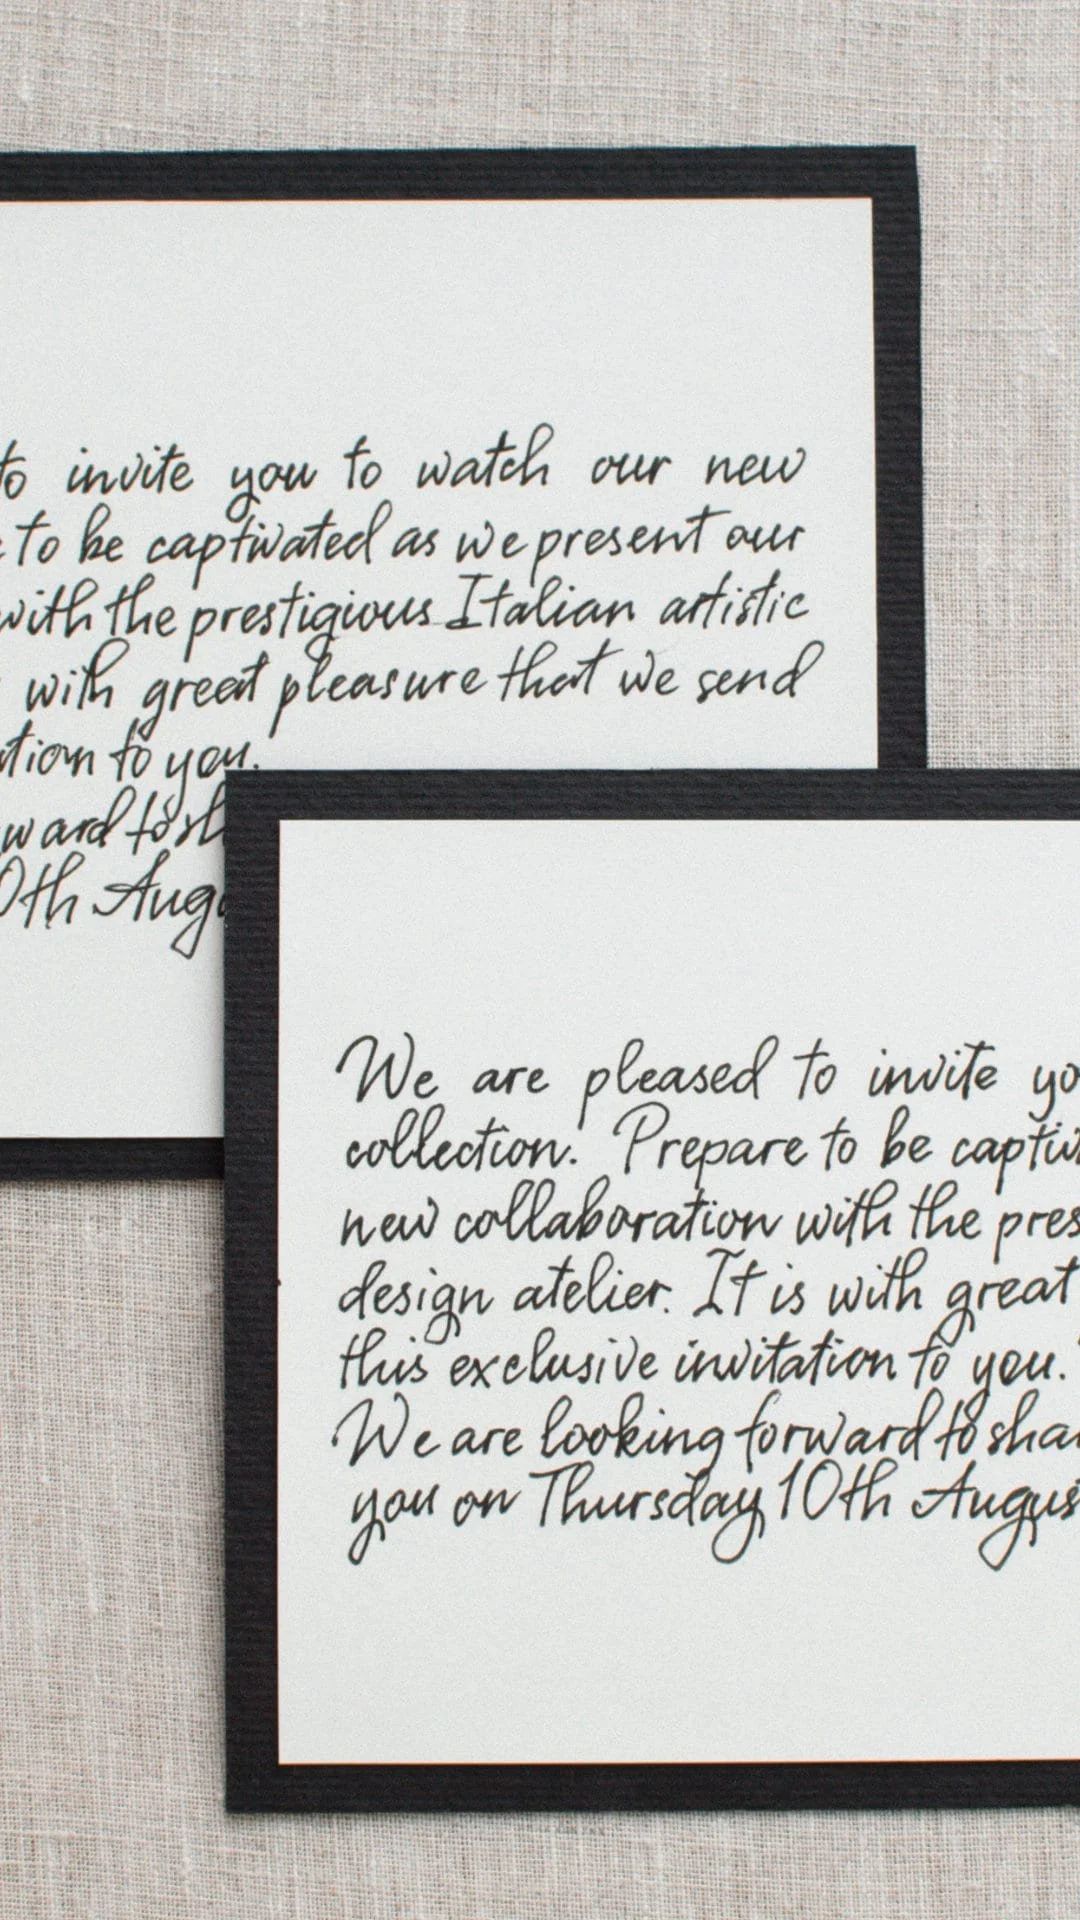 to invite you to watch our new
to be captivated as we present our
with the prestigious Italian artistic
with great pleasure that we send
to you.
We are pleased to invite
collection. Prepare to be
new collaboration with the
design atelier. It is with great
this exclusive invitation to you.
We are looking forward to
you on Thursday 10th